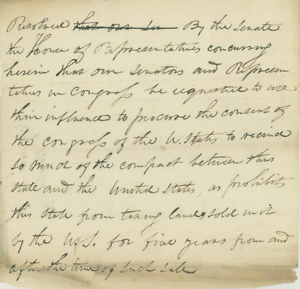 Resolved that our Sen By the Senate
the House of Representatives concurring
herein that our Senators and Represen
tatives in Congress be requested to use
their influence to procure the consent of
the congress of the U. States to recind
so much of the compact between this
State and the United States, as prohibits
this State from taxing lands sold in it
by the U.S. for five years from and
after the time of such sale